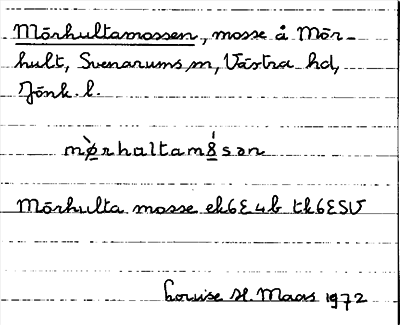 Mörhultamossen, mosse å Mör-
hult, Svenarums sn, Västra hd,
Jönk. l.
mø̀rhaltam8́sən
Mörhulta mosse ek6E4b tk6ESV
Louise H. Maas 1972